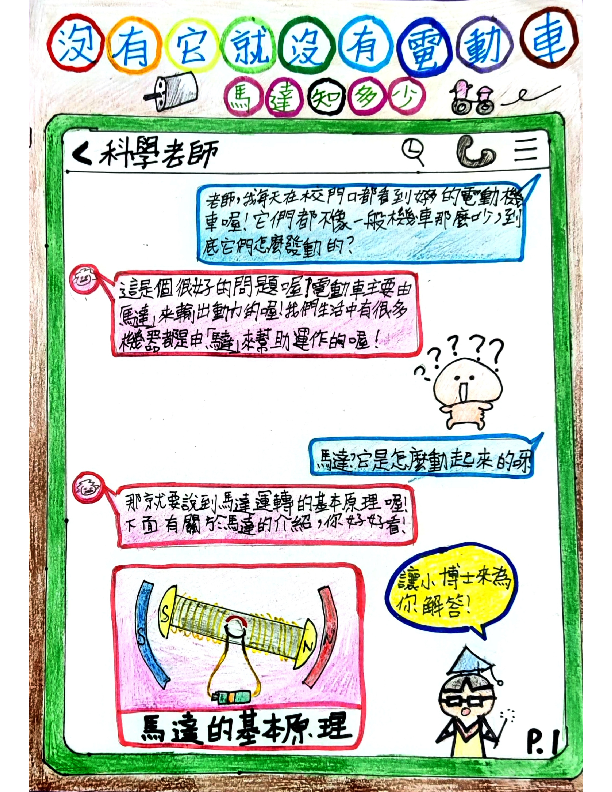 沒有它就沒有電動車
馬達知多少
科學老師
老師,我每天在校門口都看到好多的電動機
車喔!它們都不像一般機車那麼吵,到
底它們怎麼發動的?
這是個很好的問題喔!電動車主要由
「馬達」來輸出動力的喔!我們生活中有很多
機器都是由「馬達」來幫助運作的喔!
?????
馬達?它是怎麼動起來的呀
那就要說到馬達運轉的基本原理喔!
下面有關於馬達的介紹,你好好看!
讓小博士來為
你解答!
S
N
馬達的基本原理
P.1